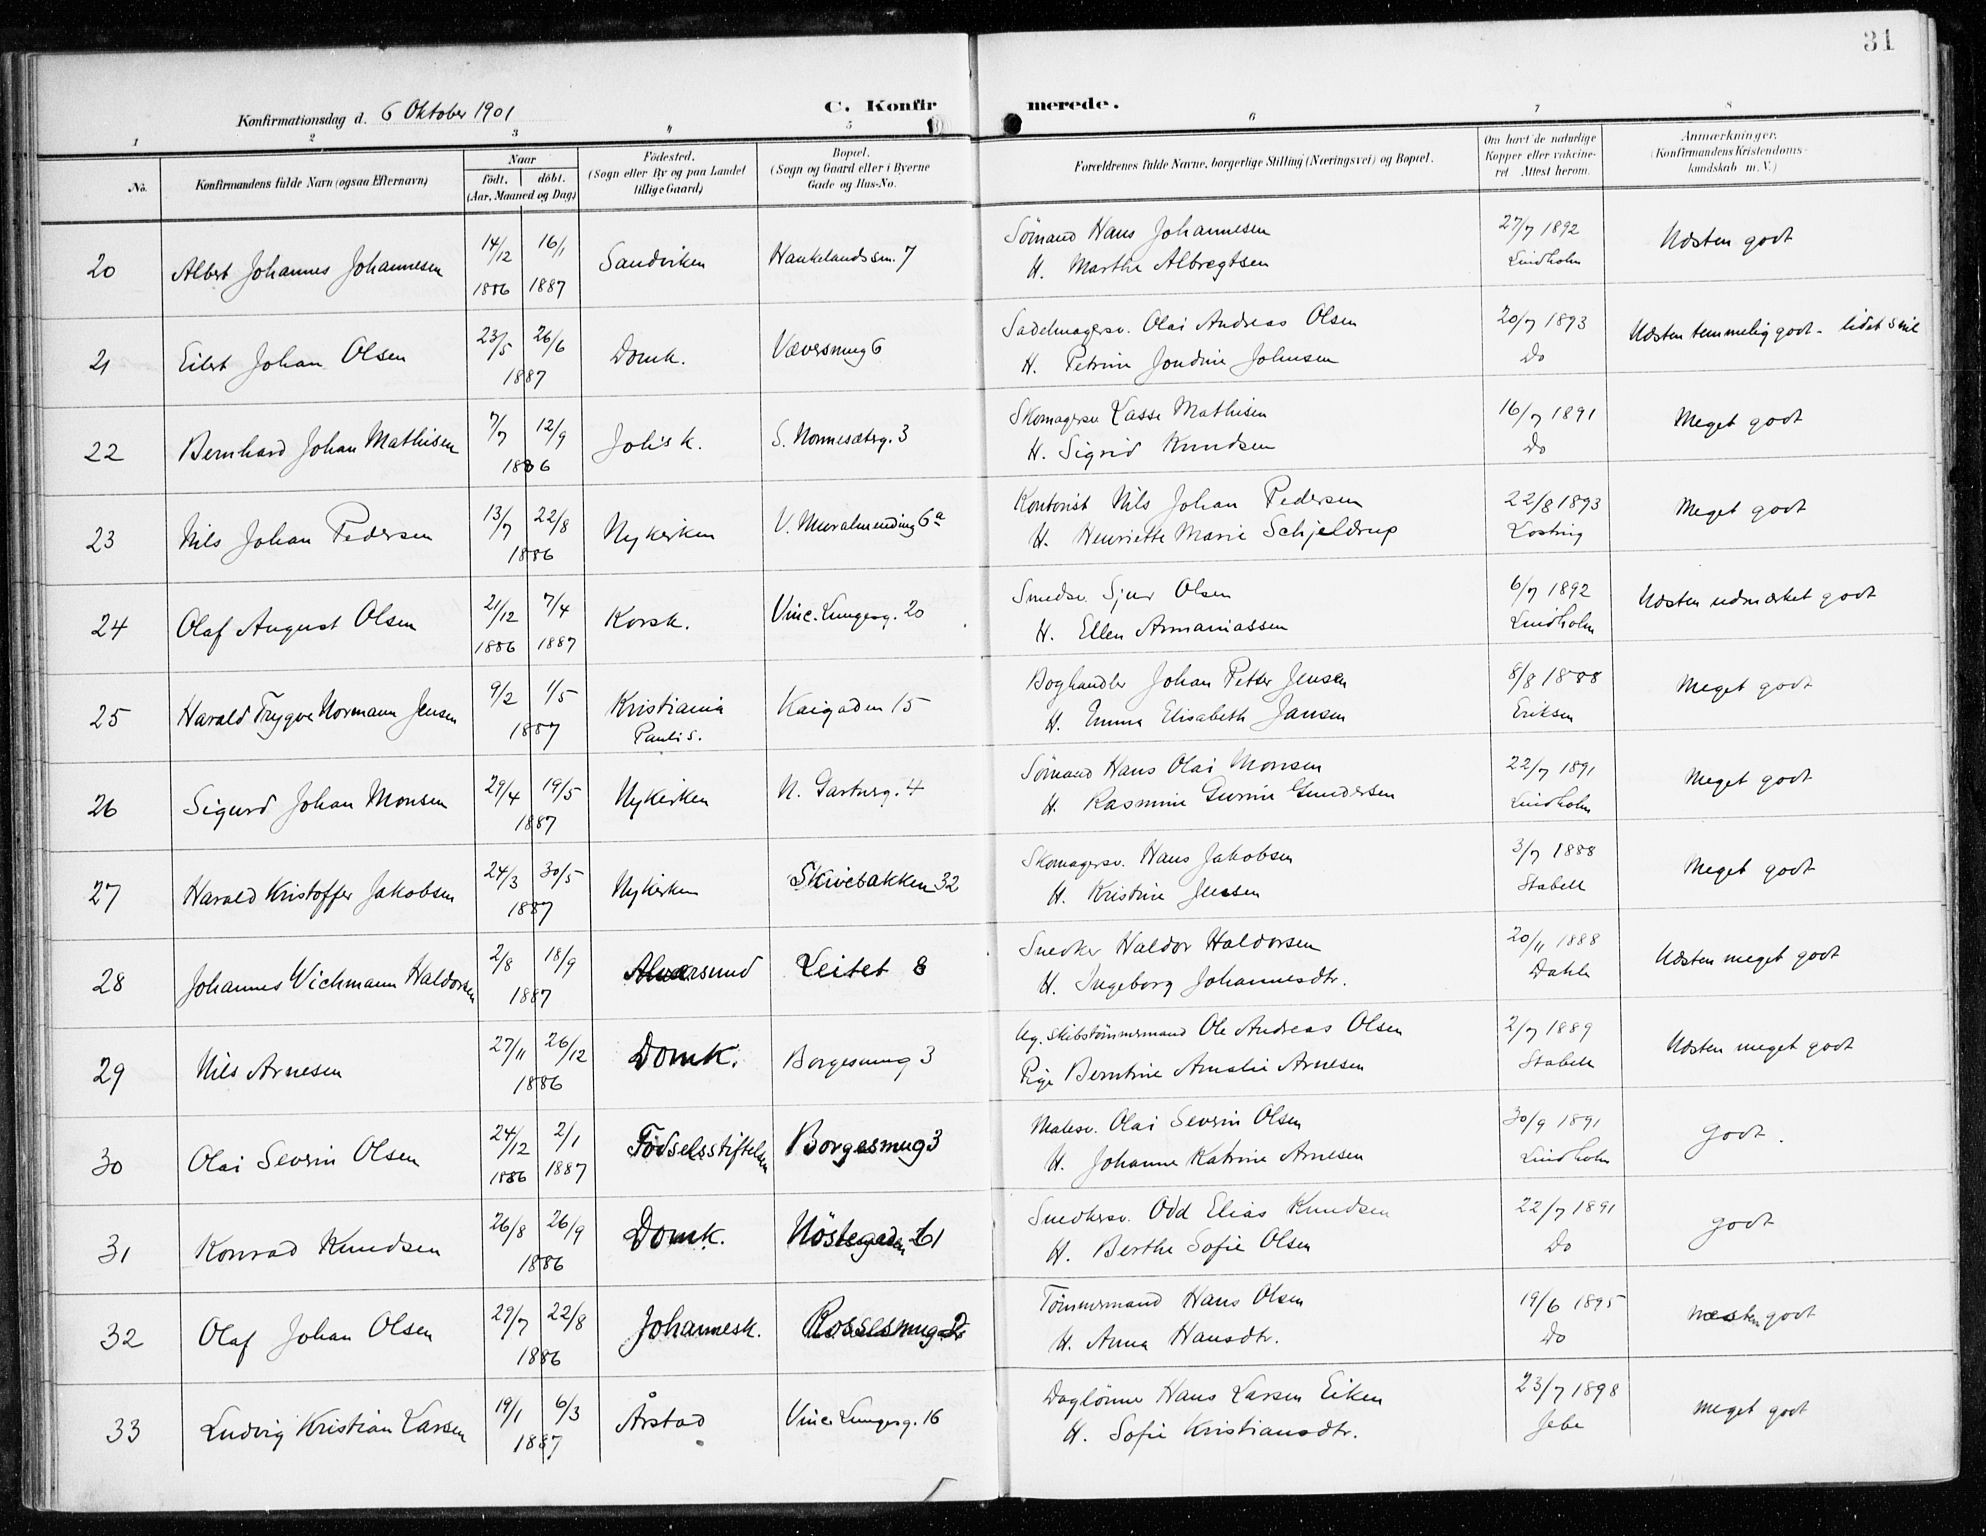 31
Konfirmationsdag d. 6 Oktober 1901
C. Konfirmerede.
1 2 3 4 5 6 7 8
No.
Konfirmandens fulde Navn (ogsaa Efternavn)
Naar
födt. döbt.
(Aar, Maaned og Dag)
Födested.
(Sogn eller By og paa Landet
tillige Gaard)
Bopæl.
(Sogn og Gaard eller i Byerne
Gade og Hus-No.
Forældrenes fulde Navne, borgerlige Stilling (Næringsvei) og Bopæl.
Om havt de naturlige
Kopper eller vakcine-
ret Attest herom.
Anmærkninger.
(Konfirmandens Kristendoms-
kundskab m. V.)
20 Albert Johannes Johannesen 14/12 1886 16/1 1887 Sandviken Haukelandssm. 7
Sömand Hans Johannesen 27/7 1892 Næsten godt
H. Marthe Albregtsen Lindholm
21 Eilert Johan Olsen 23/5 26/6 1887 Domk. Væversmug 6
Sadelmagersv. Olai Andreas Olsen 20/7 1893 Næsten temmelig godt - lidet
H. Petrine Jondine Johnsen Do
22 Bernhard Johan Mathisen 7/7 12/9 1886 Johsk. S. Nonnesæterg. 3
Skomagersv. Lasse Mathisen 16/7 1891 Meget godt
H. Sigrid Knudsen Do
23 Nils Johan Pedersen 13/7 22/8 1886 Nykirken V. Muralmending 6a
Kontorist Nils Johan Pedersen 22/8 1893 Meget godt
H. Henriette Marie Schjeldrup
24 Olaf August Olsen 21/12 1886 7/4 1887 Korsk. Vinc. Lungesg. 20
Smedsv. Sjur Olsen 6/7 1892 Næsten udmærket godt
H. Ellen Armaniassen Lindholm
25 Harald Trygve Normann Jensen 9/2 1/5 1887 Kristiania Kaigaden 15
Pauli S.
Boghandler Johan Petter Jensen 8/8 1888 Meget godt
H. Emma Elisabeth Jansen Eriksen
26 Sigurd Johan Monsen 29/4 19/5 1887 Nykirken N. Gartnerg. 4
Sömand Hans Olai Monsen 22/7 1891 Meget godt
H. Rasmine Gurine Gundersen Lindholm
27 Harald Kristoffer Jakobsen 24/3 30/5 1887 Nykirken Skivebakken 32
Skomagersv. Hans Jakobsen 3/7 1888 Meget godt
H. Kristine Jensen Stabell
28 Johannes Wichmann Haldorsen 2/8 18/9 1887 Alversund Leitet 8
Snedker Haldor Haldorsen 20/11 1888 Næsten meget godt
H. Ingeborg Johannesdtr. Dahle
29 Nils Arnesen 27/11 26/12 1886 Domk. Borgesmug 3
Ug. Skibstömmermand Ole Andreas Olsen 2/7 1889 Næsten meget godt
Pige Berntine Amalie Arnesen Stabell
30 Olai Severin Olsen 24/12 1886 2/1 1887 Födselsstiftelsen Borgesmug 3
Malesv. Olai Severin Olsen 30/9 1891 godt.
H. Johanne Katrine Arnesen Lindholm
31 Konrad Knudsen 26/8 26/9 1886 Domk. Nöstegaden 61
Snedkersv. Odd Elias Knudsen 22/7 1891 godt
H. Berthe Sofie Olsen Do
32 Olaf Johan Olsen 29/7 22/8 1886 Johannesk. Rossesmug
Tömmermand Hans Olsen 19/6 1895 næsten godt
H. Anna Hansdtr. Do
33 Ludvig Kristian Larsen 19/1 6/3 1887 Årstad Vinc. Lungesg. 16
Daglönner Hans Larsen Eiken 23/7 1898 Meget godt
H. Sofie Kristiansdtr. Jebe